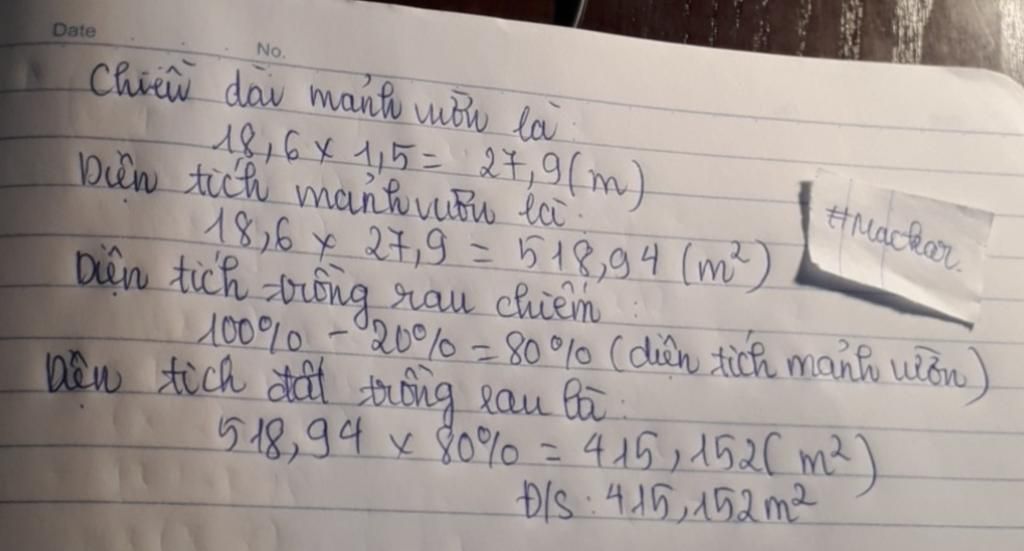 Date
No.
Chiều dài mảnh vườn là:
18,6 x 1,5 = 27,9 (m)
Diện tích mảnh vườn là:
18,6 x 27,9 = 518,94 (m²)
Diện tích trồng rau chiếm:
100% - 20% = 80% (diện tích mảnh vườn)
Diện tích đất trồng rau là:
518,94 x 80% = 415,152 (m²)
Đ/S: 415,152 m²